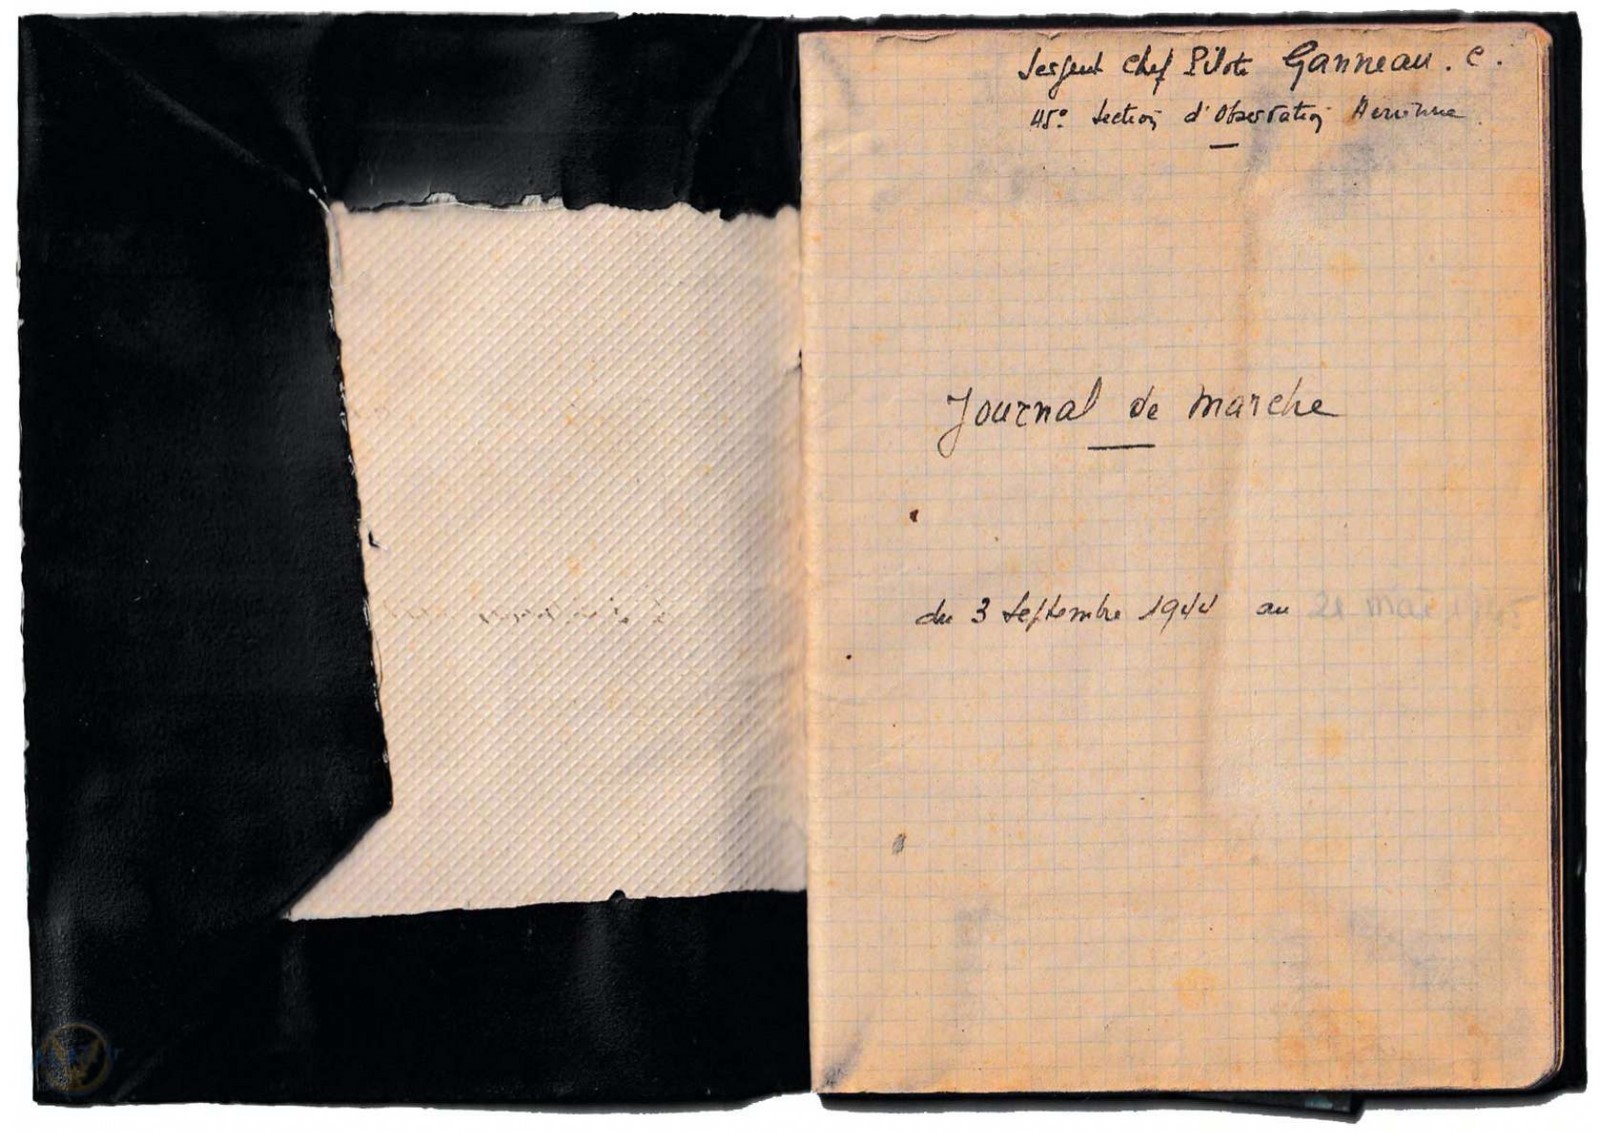 Sergent Chef Pilote Ganneau. C.
45e Section d'Observation Aérienne.
Journal de Marche
du 3 Septembre 1944 au 21 Mai